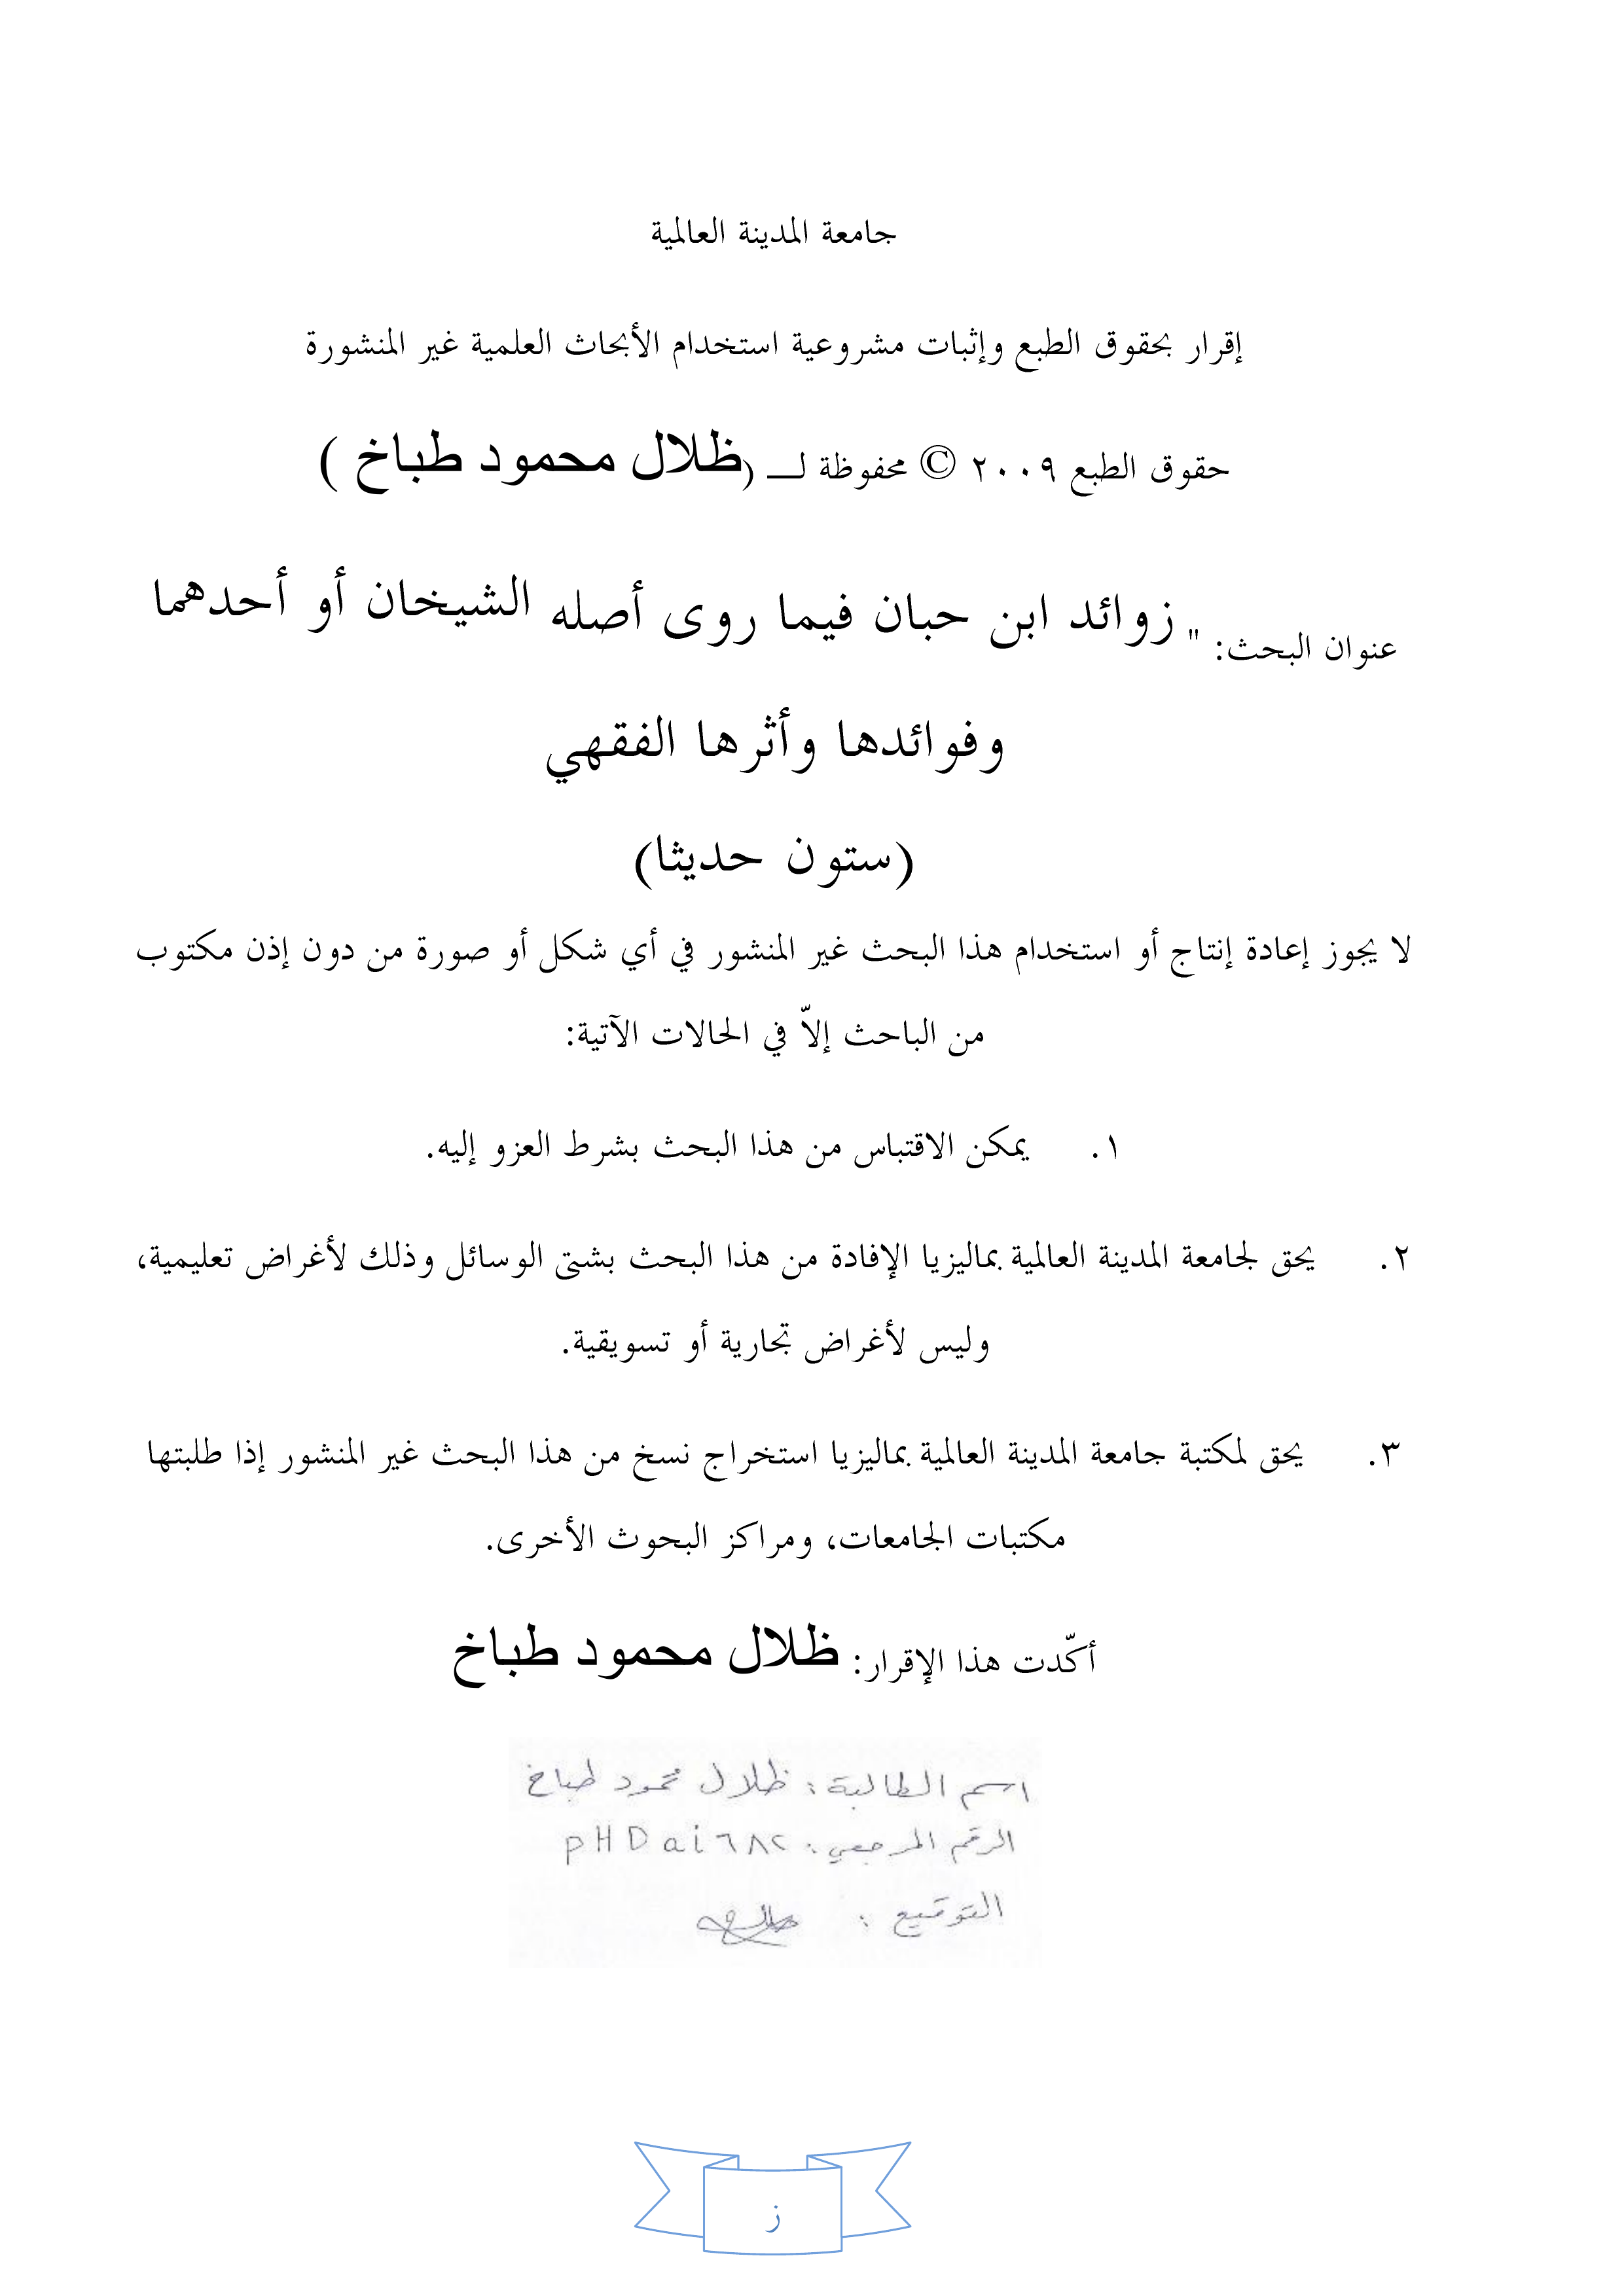 جامعة المدينة العالمية
إقرار بحقوق الطبع وإثبات مشروعية استخدام الأبحاث العلمية غير المنشورة
حقوق الطبع ٢٠٠٩ © محفوظة لـــ (ظلال محمود طباخ )
عنوان البحث: " زوائد ابن حبان فيما روى أصله الشيخان أو أحدهما
وفوائدها وأثرها الفقهي
(ستون حديثا)
لا يجوز إعادة إنتاج أو استخدام هذا البحث غير المنشور في أي شكل أو صورة من دون إذن مكتوب
من الباحث إلاّ في الحالات الآتية:
١. يمكن الاقتباس من هذا البحث بشرط العزو إليه.
٢. يحق لجامعة المدينة العالمية بماليزيا الإفادة من هذا البحث بشتى الوسائل وذلك لأغراض تعليمية،
وليس لأغراض تجارية أو تسويقية.
٣. يحق لمكتبة جامعة المدينة العالمية بماليزيا استخراج نسخ من هذا البحث غير المنشور إذا طلبتها
مكتبات الجامعات، ومراكز البحوث الأخرى.
أكّدت هذا الإقرار: ظلال محمود طباخ
اسم الطالبة: ظلال محمود طباخ
الرقم المرجعي: pHDai٦٨٢
التوقيع :
ز